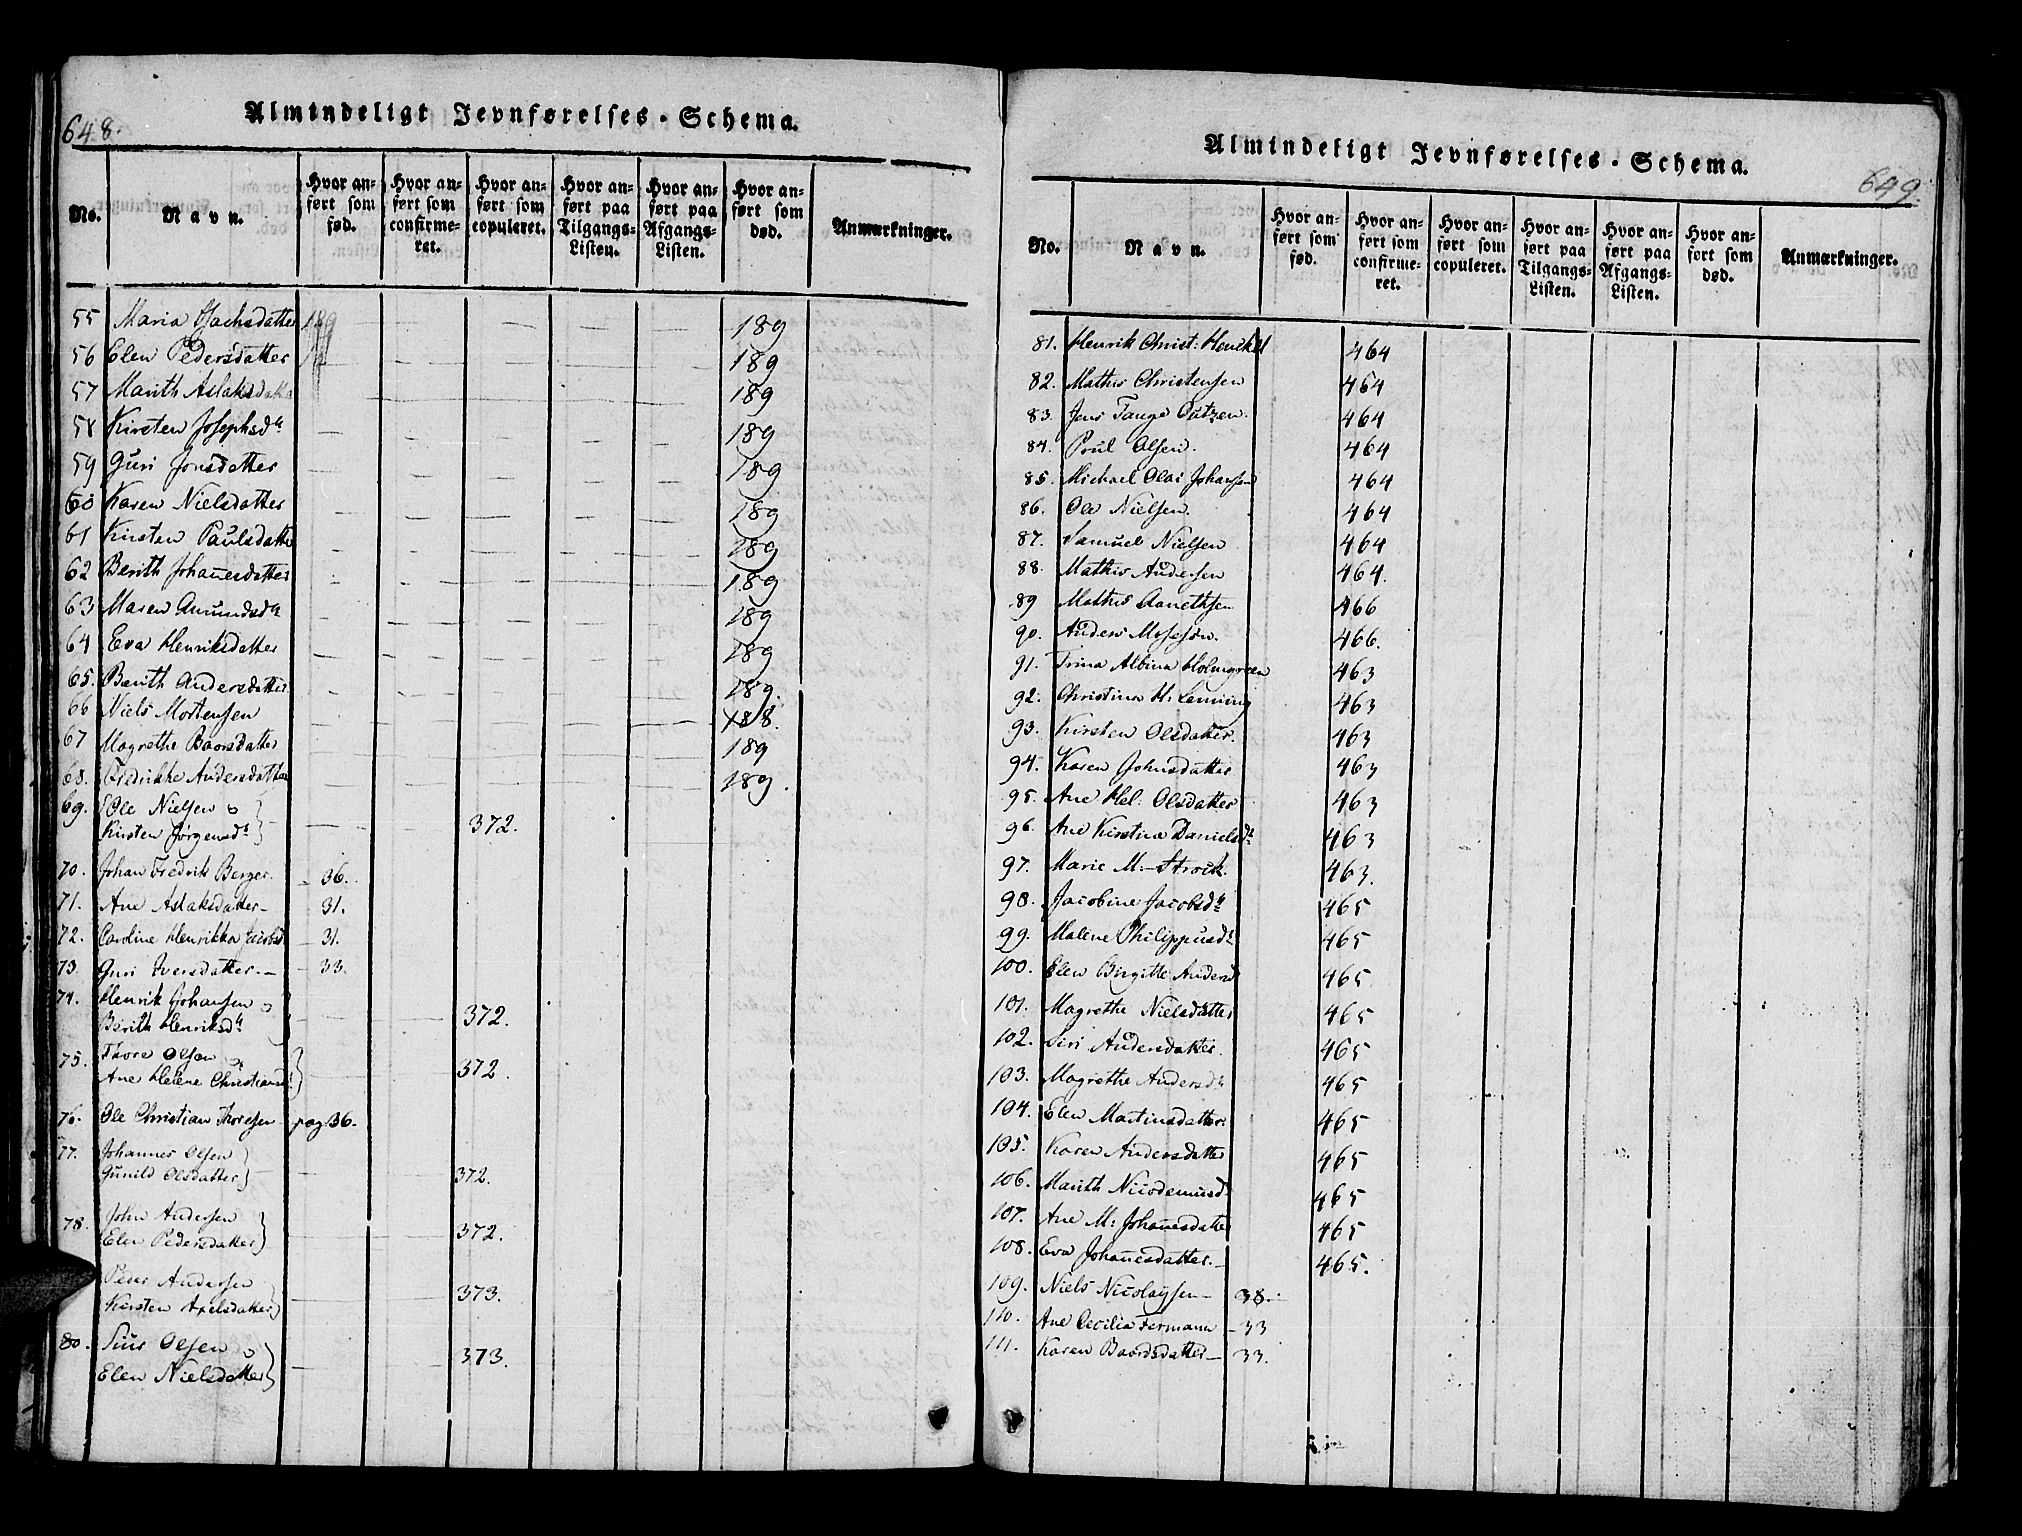 648.
Almindeligt Jevnførelses-Schema.
No. Navn. Hvor anført som fød. Hvor anført som confirmeret. Hvor anført som copuleret. Hvor anført paa Tilgangs-Listen. Hvor anført paa Afgangs-Listen. Hvor anført som død. Anmærkninger.
55 Maria Isachsdatter 189
56 Elen Pedersdatter 189
57 Marith Aslaksdatter 189
58 Kirsten Josephsdr 189
59 Guri Jonsdatter 189
60 Karen Nielsdatter 189
61 Kirsten Paulsdatter 189
62 Berith Johanesdatter 189
63 Maren Amundsdr 189
64 Eva Henriksdatter 189
65. Berith Andersdatter 189.
66 Niels Mortensen 188.
67 Magrethe Baarsdatter 189
68. Fredrikke Andersdatter 189.
69. Ole Nielsen o
Kirsten Jørgensdr 372.
70. Johan Fredrik Berger. 36.
71. Ane Aslaksdatter 31.
72. Caroline Henrikka Jacobsd 31.
73. Guri Iversdatter 33.
74. Henrik Johansen o
Berith Henriksdr 372.
75. Thore Olsen o
Ane Helene Christiansd 372.
76. Ole Christian Thoresen pag. 36.
77. Johannes Olsen
Gunild Olsdatter 372.
78. John Andersen
Elen Pedersdatter 372.
Peder Andersen
Kirsten Axelsdatter 373.
80. Siur Olsen o
Elen Nielsdatter 373.
649.
Almindeligt Jevnførelses-Schema.
No. Navn. Hvor anført som fød. Hvor anført som confirmeret. Hvor anført som copuleret. Hvor anført paa Tilgangs-Listen. Hvor anført paa Afgangs-Listen. Hvor anført som død. Anmærkninger.
81. Henrik Christ: Henckel 464
82. Mathis Christensen 464
83. Jens Tange 464
84. Poul Olsen. 464
85. Michael Olai Johansen 464
86. Ole Nielsen. 464
87. Samuel Nielsen 464
88. Mathis Andersen 464.
89 Mathis 466
90. Anders Mosesøn. 466.
91. Trina Albina Holmgreen 463
92. Christina H: 463
93. Kirsten Olsdatter. 463
94. Karen Johnsdatter 463
95. Ane Hel: Olsdatter 463
96. Ane Kirstine Danielsdr 463
97. Marie M. 463.
98. Jacobine Jacobsdr 465
99. Malene Philippusdr 465
100. Elen Birgitte Andersd 465
101. Magrethe Nielsdatter 465
102. Siri Andersdatter. 465
103. Magrethe Andersdr 465
104. Elen Martinsdatter 465
105. Karen Andersdatter 465
106. Marith Nicodemusd 465
107. Ane M: Johanesdatter 465
108. Eva Johanesdatter. 465.
109. Niels Nicolaysen 38.
110. Ane Cecilia Fermann 33
111. Karen Baardsdatter 33.